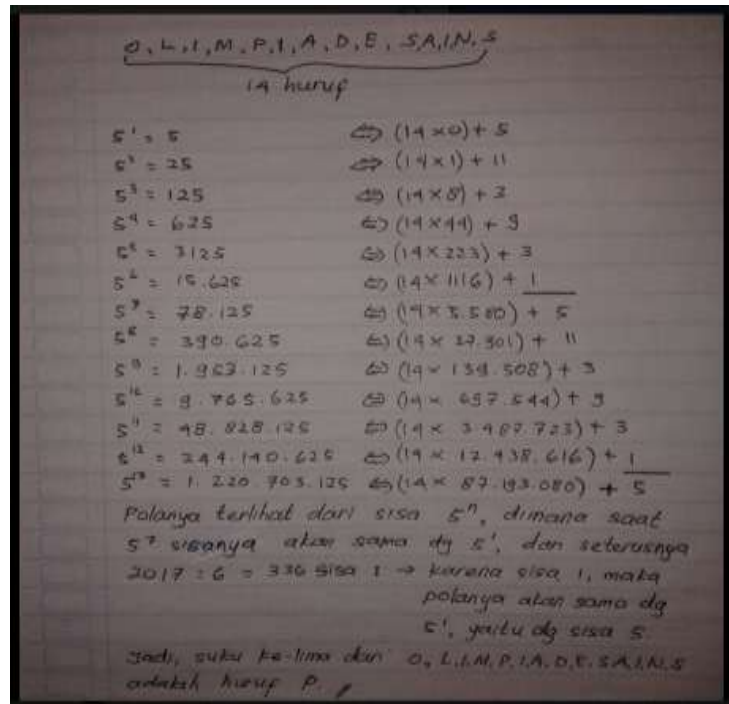 O, L, I, M, P, I, A, D, E, S, A, I, N, S
14 huruf
5¹ = 5 ⇔ (14 × 0) + 5
5² = 25 ⇔ (14 × 1) + 11
5³ = 125 ⇔ (14 × 8) + 3
5⁴ = 625 ⇔ (14 × 44) + 9
5⁵ = 3125 ⇔ (14 × 223) + 3
5⁶ = 15.625 ⇔ (14 × 1116) + 1
5⁷ = 78.125 ⇔ (14 × 5.580) + 5
5⁸ = 390.625 ⇔ (14 × 27.901) + 11
5⁹ = 1.953.125 ⇔ (14 × 139.508) + 3
5¹⁰ = 9.765.625 ⇔ (14 × 697.544) + 9
5¹¹ = 48.828.125 ⇔ (14 × 3.487.723) + 3
5¹² = 244.140.625 ⇔ (14 × 17.438.616) + 1
5¹³ = 1.220.703.125 ⇔ (14 × 87.193.080) + 5
Polanya terlihat dari sisa 5ⁿ, dimana saat
5⁷ sisanya akan sama dg 5¹, dan seterusnya
2017 : 6 = 336 sisa 1 → karena sisa 1, maka
polanya akan sama dg
5¹, yaitu dg sisa 5
Jadi, suku ke-lima dari O, L, I, M, P, I, A, D, E, S, A, I, N, S
adalah huruf P.